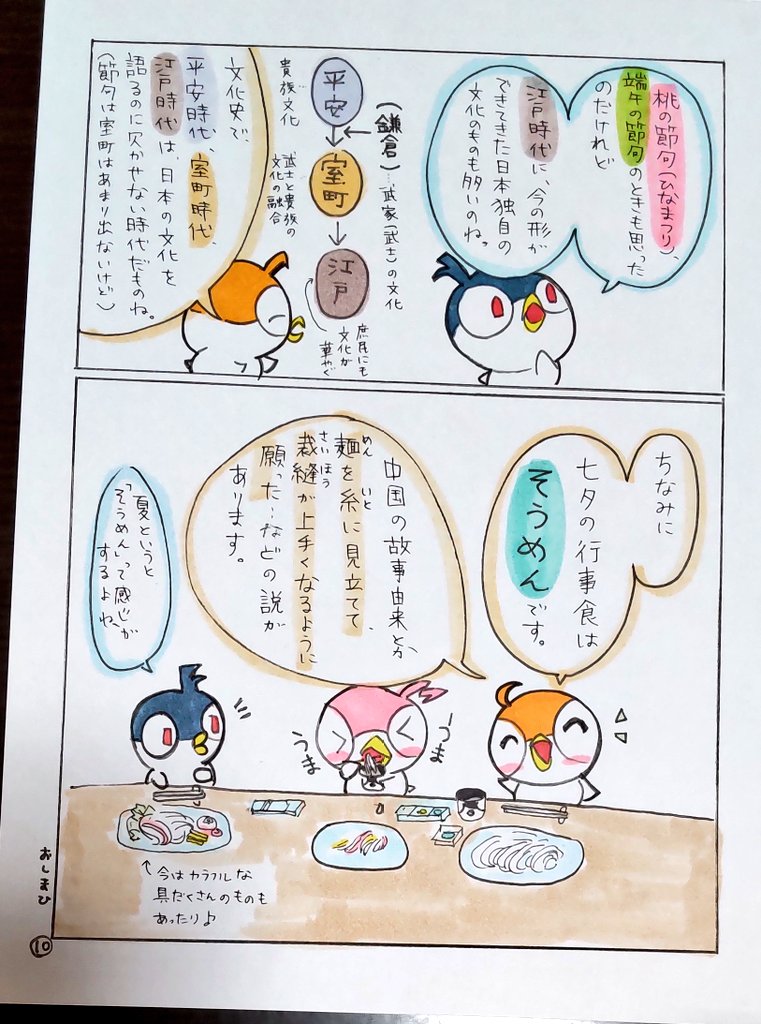 桃の節句(ひなまつり)、
端午の節句のときも思った
のだけれど
江戸時代に、今の形が
できてきた日本独自の
文化のものも多いのね。
平安
貴族文化
(鎌倉)…武家(武士)の文化
室町
武士と貴族の
文化の融合
江戸
庶民にも
文化が
華やぐ
文化史で、
平安時代、室町時代、
江戸時代は、日本の文化を
語るのに欠かせない時代だものね。
(節句は室町はあまり出ないけど)
ちなみに
七夕の行事食は
そうめんです。
中国の故事由来とか、
麺を糸に見立てて、
めん いと
裁縫が上手くなるように
さいほう
願った…などの説が
あります。
夏というと
「そうめん」って感じが
するよね、
うま
うま
↑今はカラフルな
具だくさんのものも
あったり♪
おしまひ
10